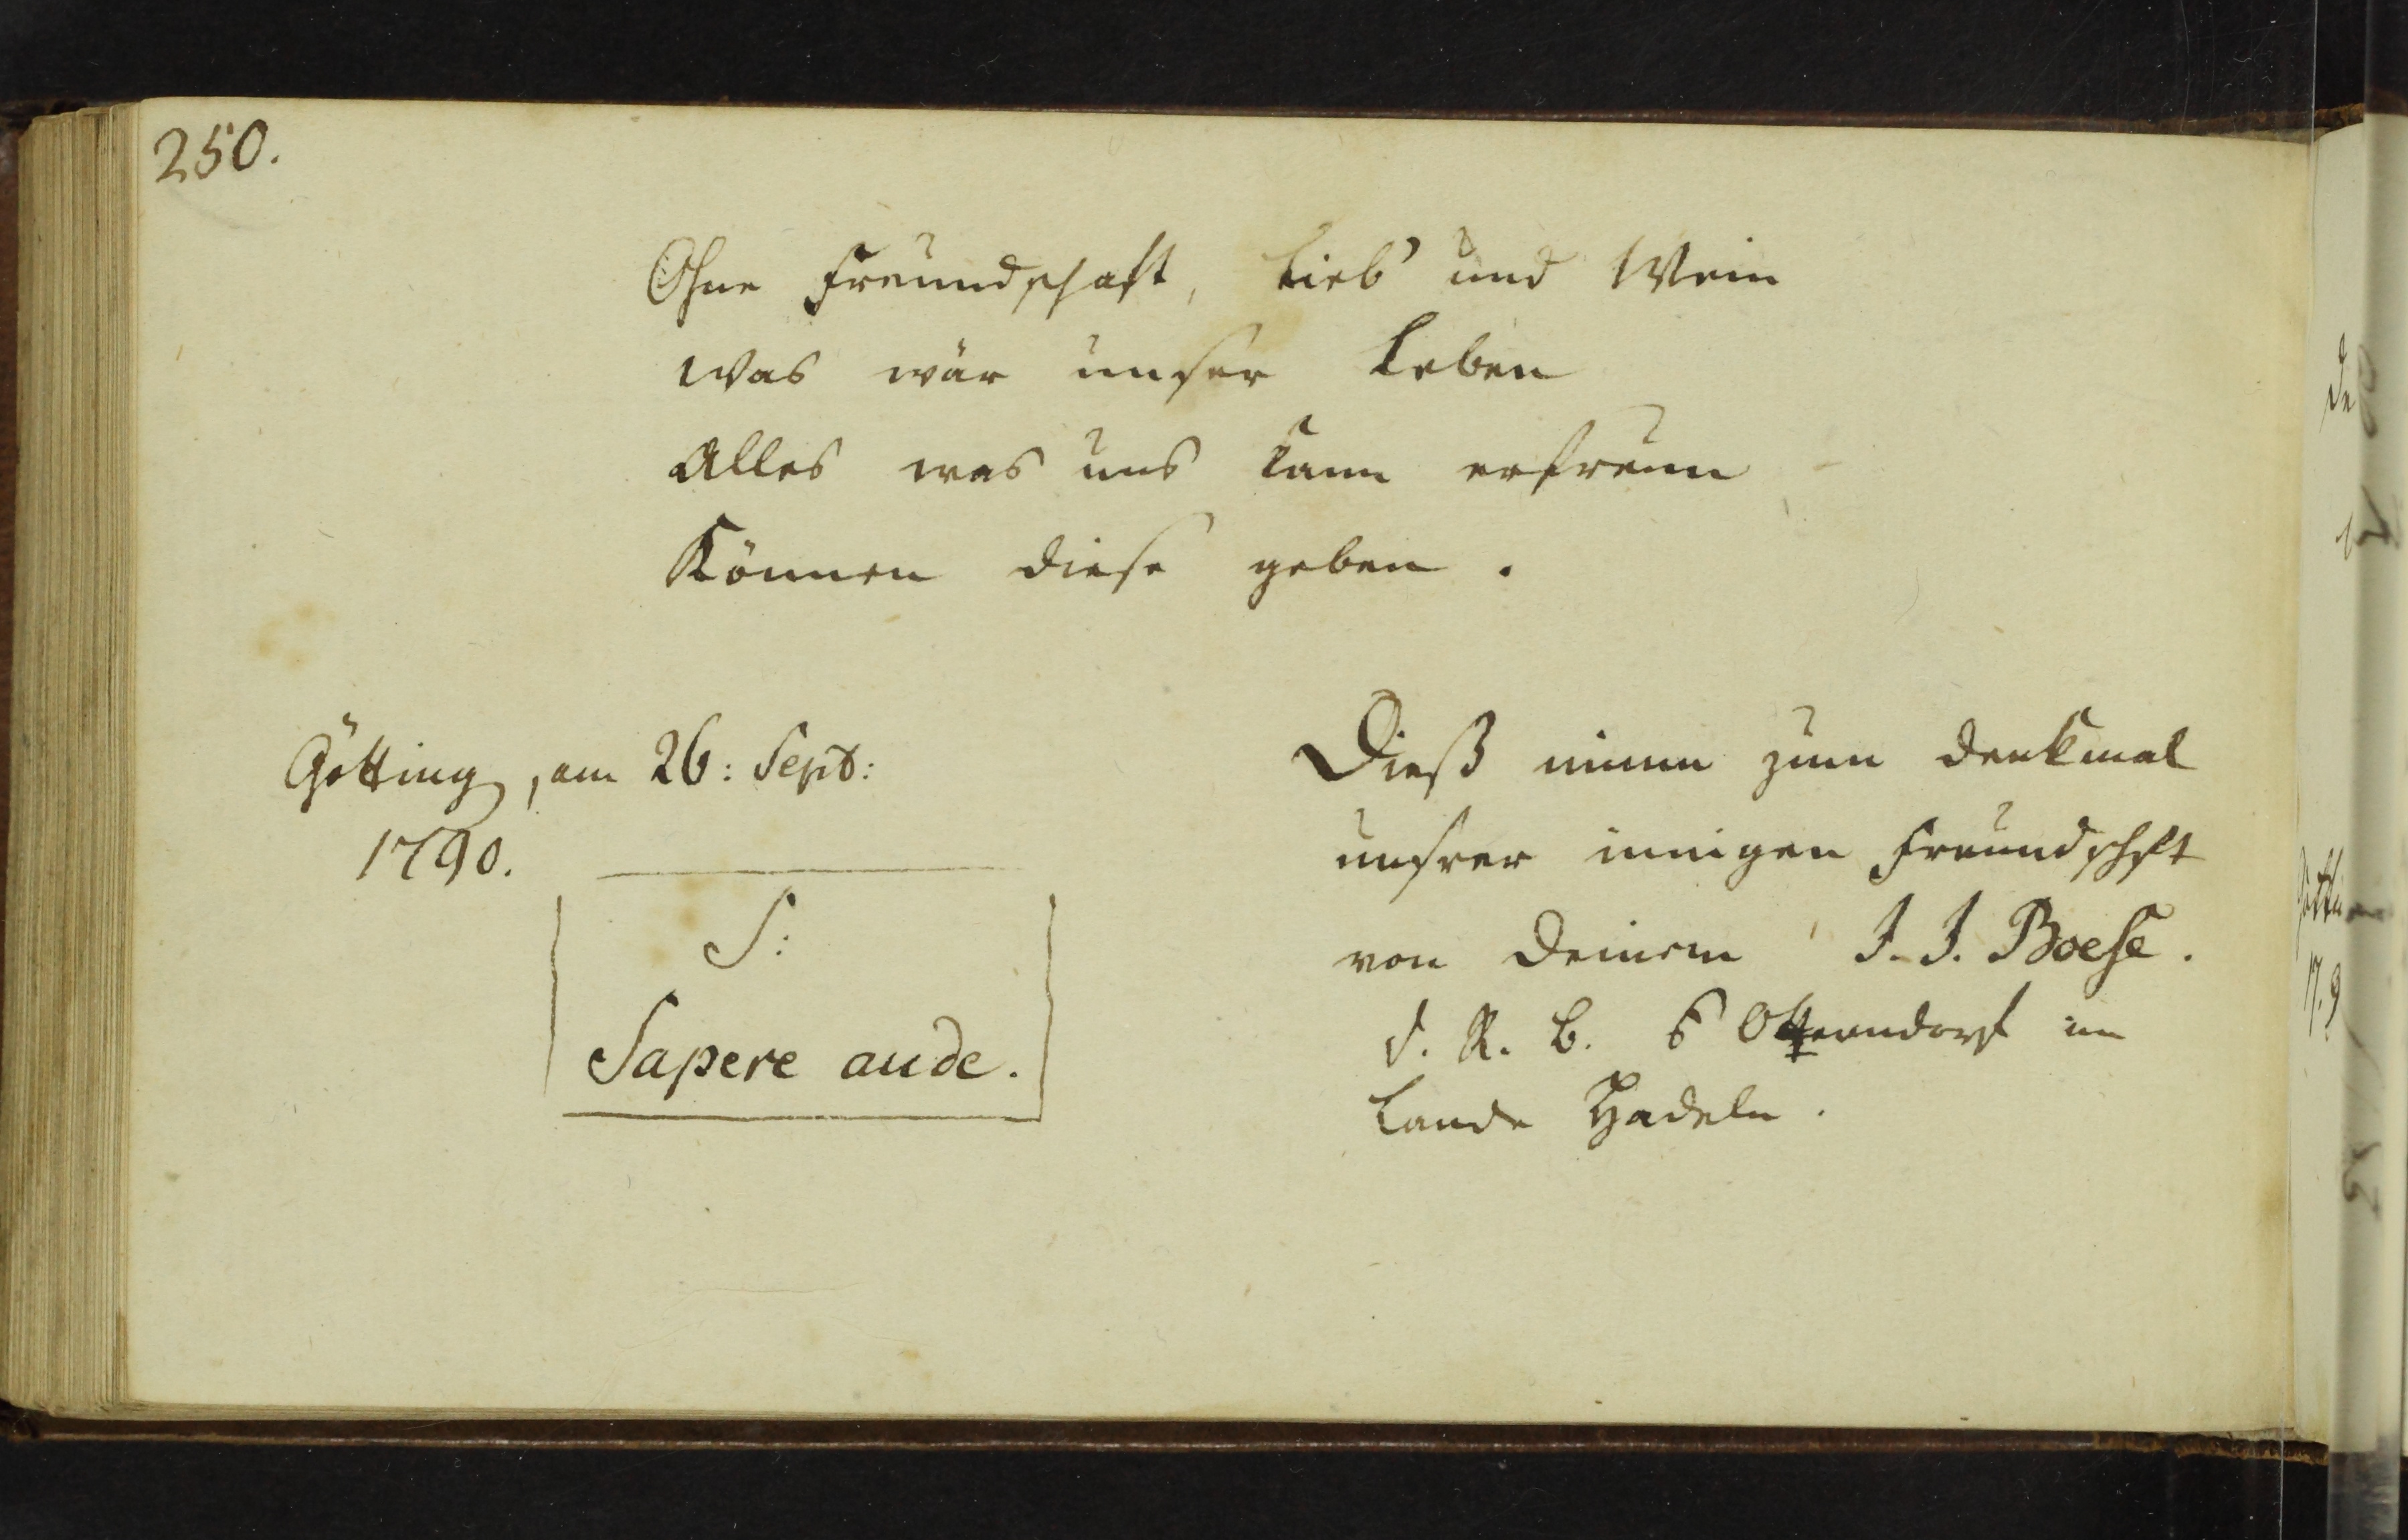 250.
Ohne Freundschaft, Lieb' und Wein
Was wär unser Leben
Alles was uns kann erfreun
Können diese geben.
Götting, am 26: Sept:
1790.
S:
Sapere aude.
Dieß nimm zum Denkmal
unsrer innigen Freundschft
von Deinem J. J. Boese.
d. R. B. Otterndorf im
Lande Hadeln.